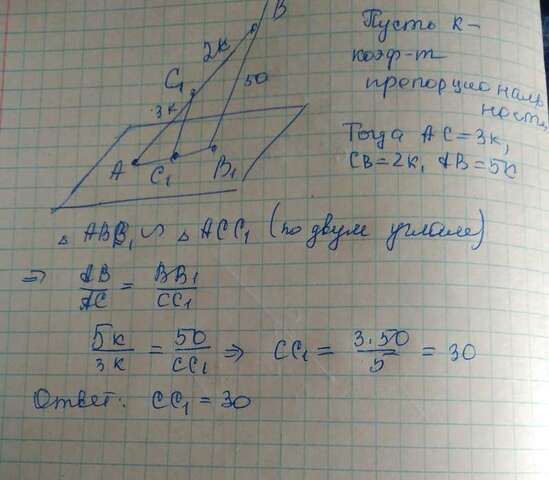 B
2к
C₁
50
3к
A
C₁
B₁
Пусть к -
коэф-т
препорциональ
ности,
Тогда AC = 3к,
CB = 2к, AB = 5к
△ ABB₁ ∽ △ ACC₁ (по двум углам)
⇒ AB/AC = BB₁/CC₁
5к/3к = 50/CC₁ ⇒ CC₁ = 3·50/5 = 30
Ответ: CC₁ = 30